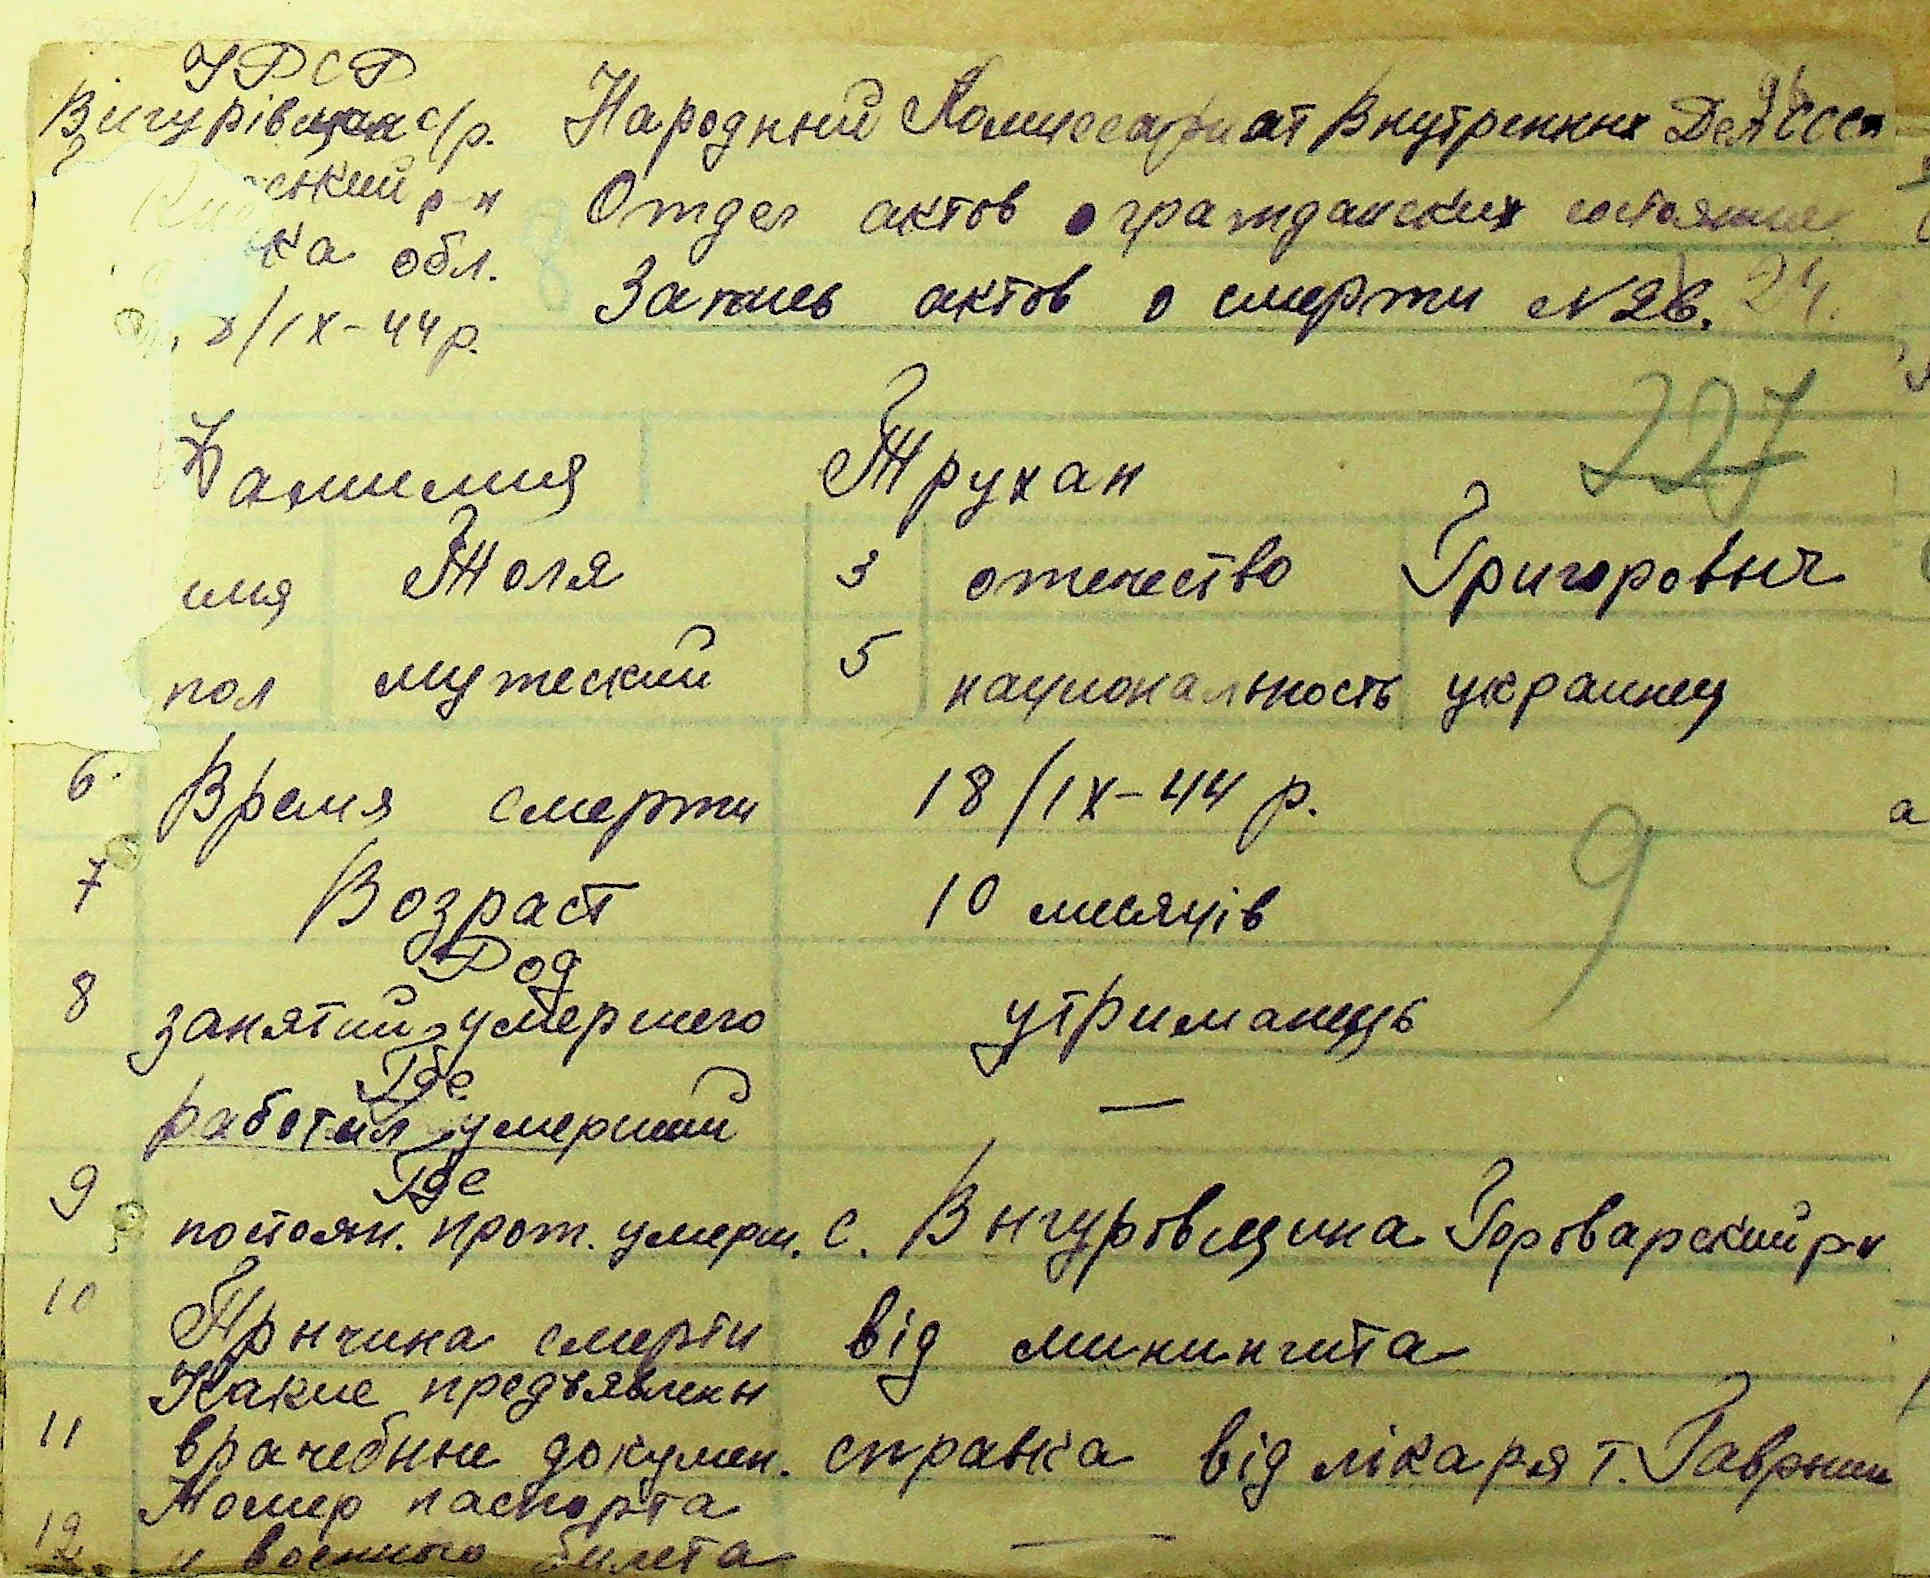 УРСР
Вигурівщан с/р. Народный Комиссариат Внутренних Дел СССР
ський р-н Отдел актов о гражданских состояния
ка обл. 8 Запись актов о смерти № 26. 24.
8/IX-44 р.
227
Фамилия Трухан
имя Толя 3 отечество Григоровыч
пол мужеский 5 национальность украинец
6. Время смерти 18/IX-44 р.
9
7 Возраст 10 месяців
8 Род
занятий умершего утриманець
Где
работал умерший —
9 Где
постоян. прож. умерш. с. Выгуровщина Броварский р-н
10 Прычина смерти від минингита
Какие предъявлены
11 врачебные докумен. справка від лікаря т.
Номер паспорта
12. и военного билета —